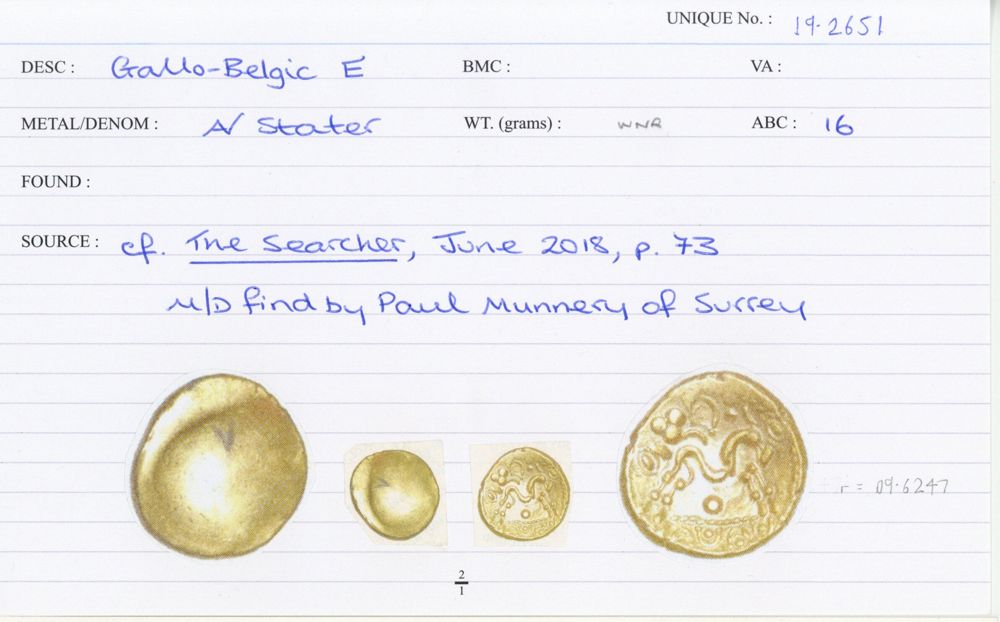 UNIQUE No. : 19.2651
DESC : Gallo-Belgic E BMC : VA :
METAL/DENOM : A/ Stater WT. (grams) : WNR ABC : 16
FOUND :
SOURCE : cf. The Searcher, June 2018, p. 73
M/D find by Paul Munnery of Surrey
r = 09.6247
2
1